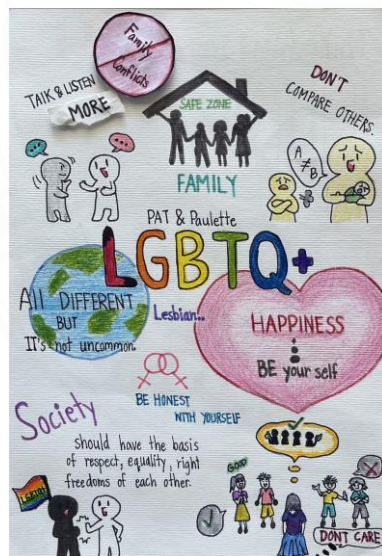 Family
Conflicts
TALK & LISTEN
MORE
SAFE ZONE
FAMILY
DON'T
COMPARE OTHERS.
A
≠
B
PAT & Paulette
LGBTQ+
All DIFFERENT
BUT
It's not uncommon.
Lesbian..
HAPPINESS
BE your self
BE HONEST
WITH YOURSELF
Society
should have the basis
of respect, equality, right
freedoms of each other.
LGBTQ+
GOOD
DONT CARE